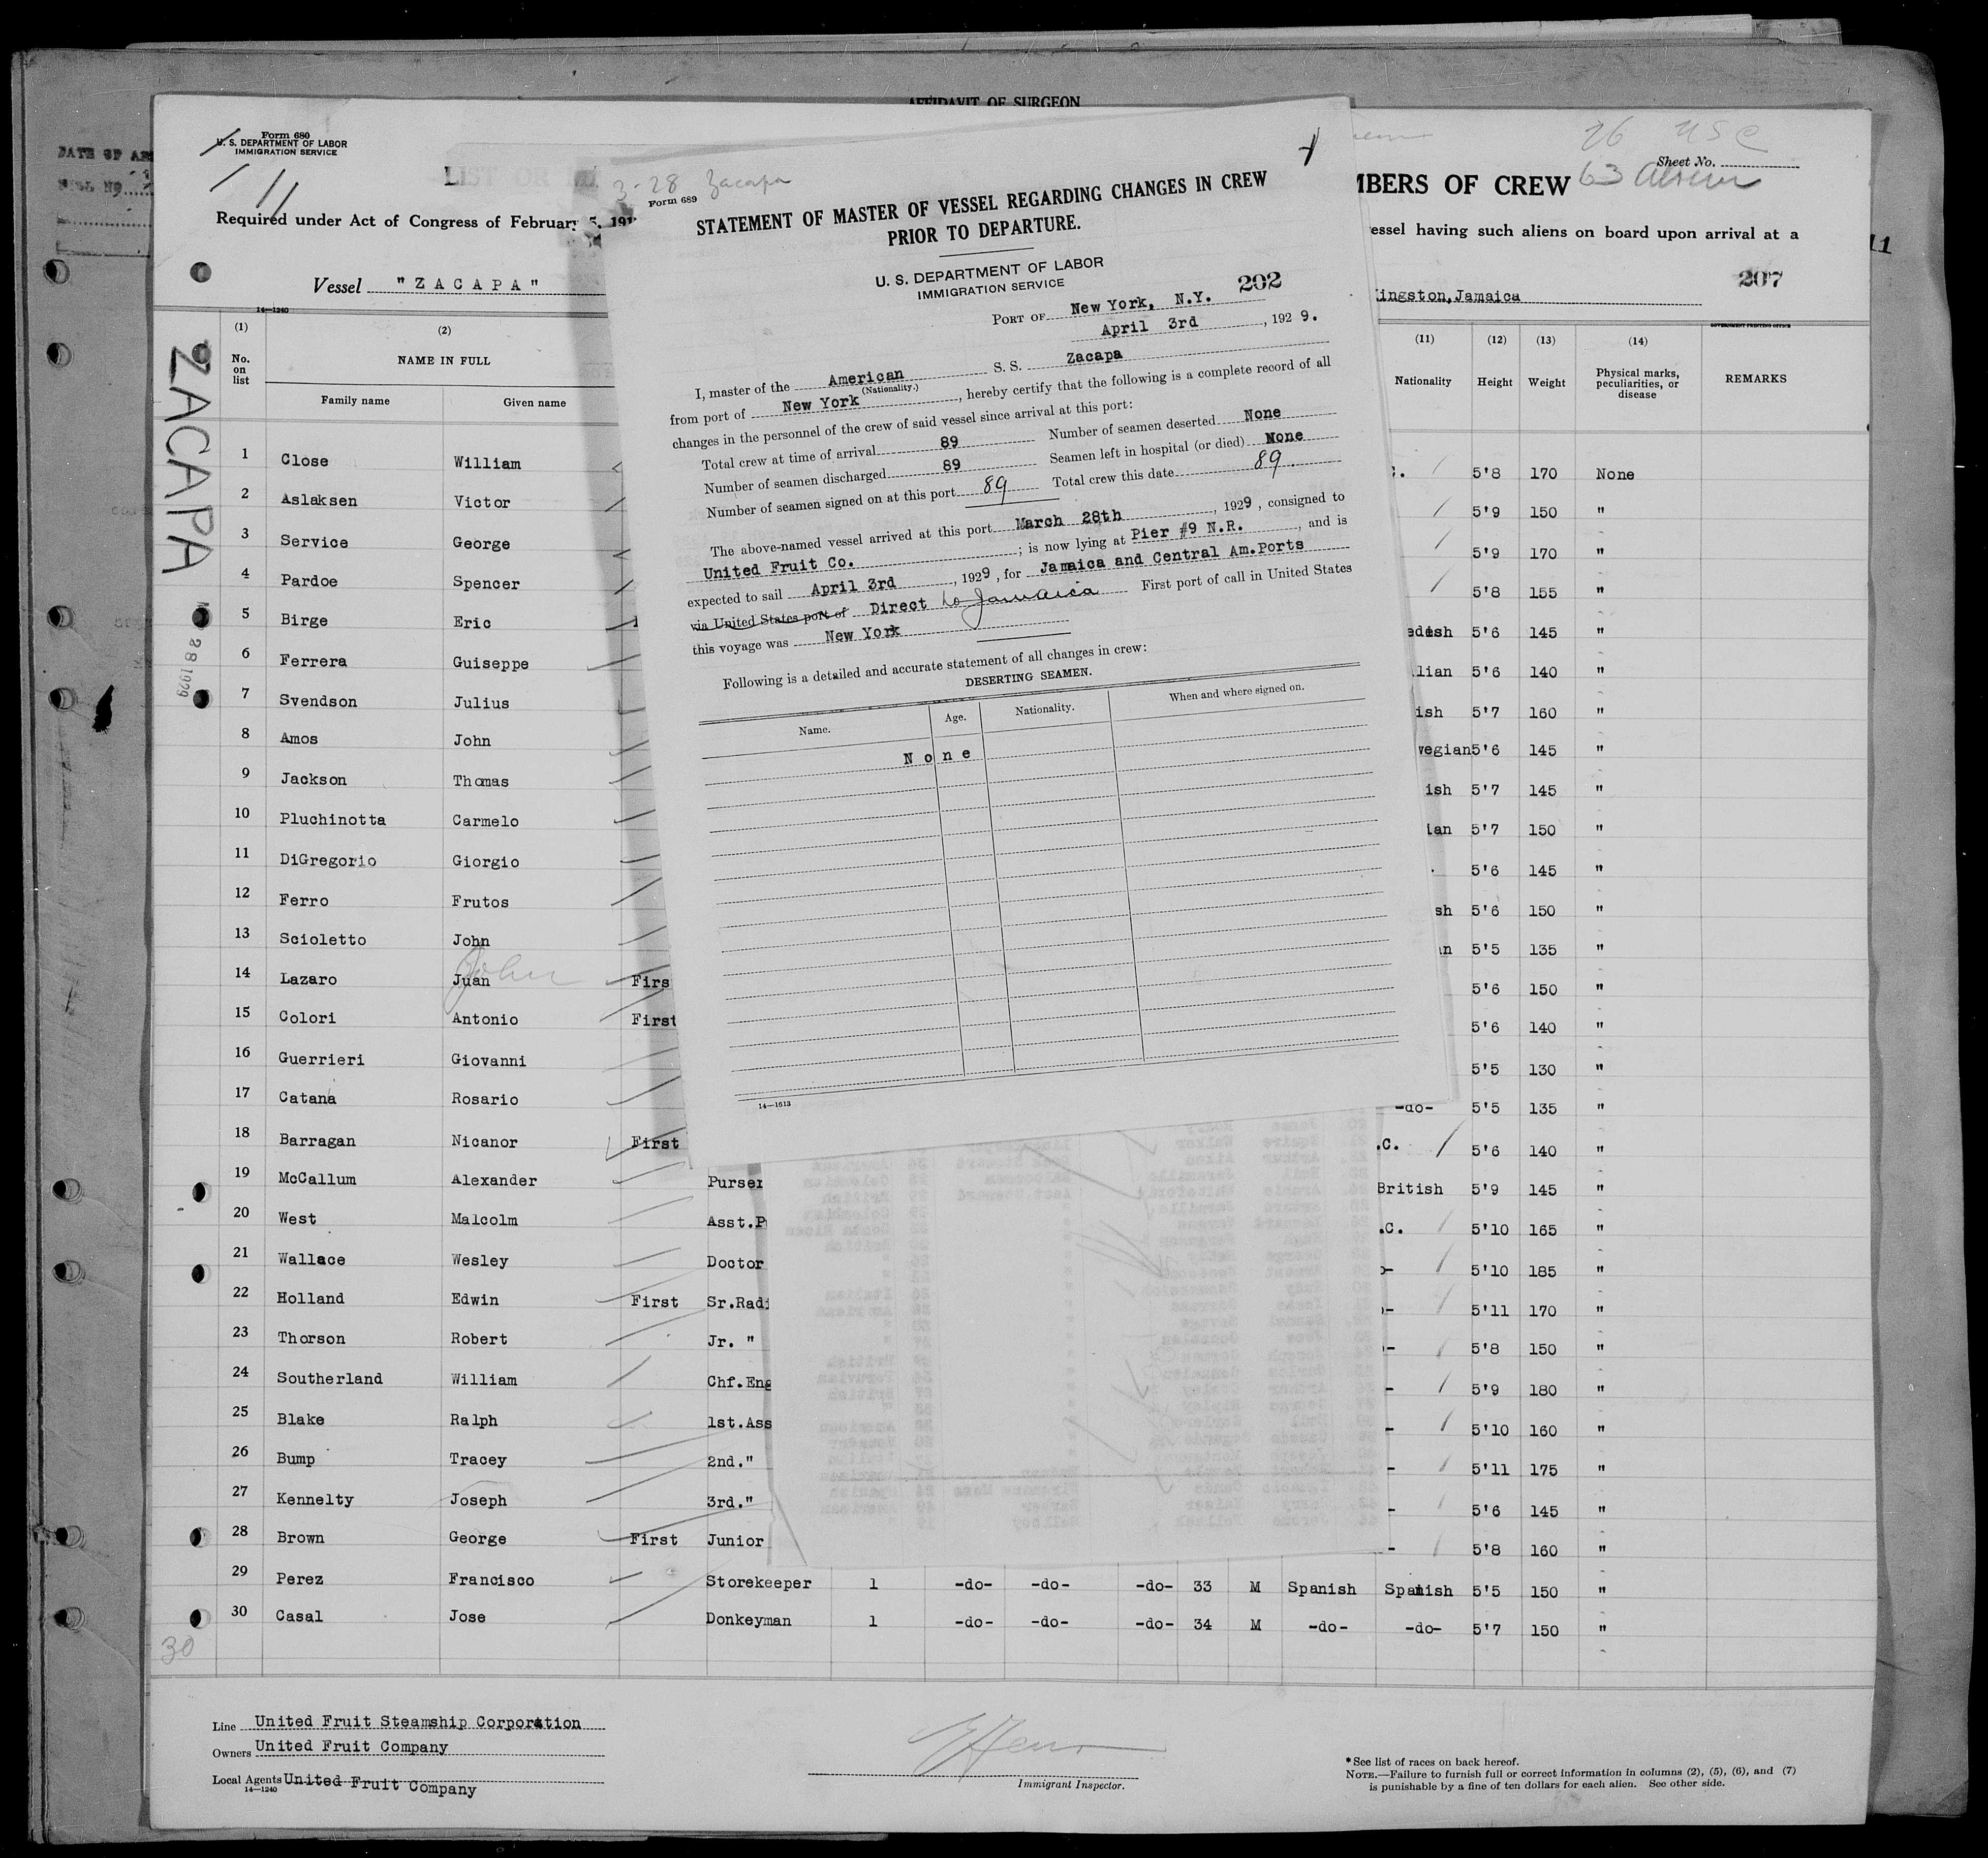 AFFIDAVIT OF SURGEON
Form 680
U. S. DEPARTMENT OF LABOR
IMMIGRATION SERVICE
11
LIST OR
Required under Act of Congress of February 5, 191
Vessel "ZACAPA"
14—1240
ZACAPA
28 1929
3-28 Zacapa
Form 689
STATEMENT OF MASTER OF VESSEL REGARDING CHANGES IN CREW
PRIOR TO DEPARTURE.
U. S. DEPARTMENT OF LABOR
IMMIGRATION SERVICE
202
PORT OF New York, N.Y.
April 3rd, 1929.
I, master of the American S. S. Zacapa
(Nationality.)
from port of New York, hereby certify that the following is a complete record of all
changes in the personnel of the crew of said vessel since arrival at this port:
Total crew at time of arrival 89 Number of seamen deserted None
Number of seamen discharged 89 Seamen left in hospital (or died) None
Number of seamen signed on at this port 89 Total crew this date 89.
The above-named vessel arrived at this port March 28th, 1929, consigned to
United Fruit Co.; is now lying at Pier #9 N.R., and is
expected to sail April 3rd, 1929, for Jamaica and Central Am.Ports
via United States port of Direct to Jamaica First port of call in United States
this voyage was New York
Following is a detailed and accurate statement of all changes in crew:
DESERTING SEAMEN.
Name. Age. Nationality. When and where signed on.
None
14—1613
26 USC
Sheet No.
63 Aliens
MBERS OF CREW
essel having such aliens on board upon arrival at a
11
207
Kingston,Jamaica
GOVERNMENT PRINTING OFFICE
(1) (2) (11) (12) (13) (14)
No. on list NAME IN FULL Nationality Height Weight Physical marks, peculiarities, or disease REMARKS
Family name Given name
1 Close William C. 5'8 170 None
2 Aslaksen Victor 5'9 150 "
3 Service George 5'9 170 "
4 Pardoe Spencer 5'8 155 "
5 Birge Eric edish 5'6 145 "
6 Ferrera Guiseppe lian 5'6 140 "
7 Svendson Julius ish 5'7 160 "
8 Amos John wegian 5'6 145 "
9 Jackson Thomas ish 5'7 145 "
10 Pluchinotta Carmelo ian 5'7 150 "
11 DiGregorio Giorgio . 5'6 145 "
12 Ferro Frutos sh 5'6 150 "
13 Scioletto John n 5'5 135 "
14 Lazaro Juan John Firs 5'6 150 "
15 Colori Antonio First 5'6 140 "
16 Guerrieri Giovanni 5'5 130 "
17 Catana Rosario -do- 5'5 135 "
18 Barragan Nicanor First .C. 5'6 140 "
19 McCallum Alexander Purser British 5'9 145 "
20 West Malcolm Asst.P .C. 5'10 165 "
21 Wallace Wesley Doctor o- 5'10 185 "
22 Holland Edwin First Sr.Radi - 5'11 170 "
23 Thorson Robert Jr. " - 5'8 150 "
24 Southerland William Chf.Eng - 5'9 180 "
25 Blake Ralph 1st.Ass - 5'10 160 "
26 Bump Tracey 2nd." - 5'11 175 "
27 Kennelty Joseph 3rd." - 5'6 145 "
28 Brown George First Junior - 5'8 160 "
29 Perez Francisco Storekeeper 1 -do- -do- -do- 33 M Spanish Spanish 5'5 150 "
30 Casal Jose Donkeyman 1 -do- -do- -do- 34 M -do- -do- 5'7 150 "
30
Line United Fruit Steamship Corporation
Owners United Fruit Company
Local Agents United Fruit Company
14—1240
Immigrant Inspector.
*See list of races on back hereof.
NOTE.—Failure to furnish full or correct information in columns (2), (5), (6), and (7)
is punishable by a fine of ten dollars for each alien. See other side.